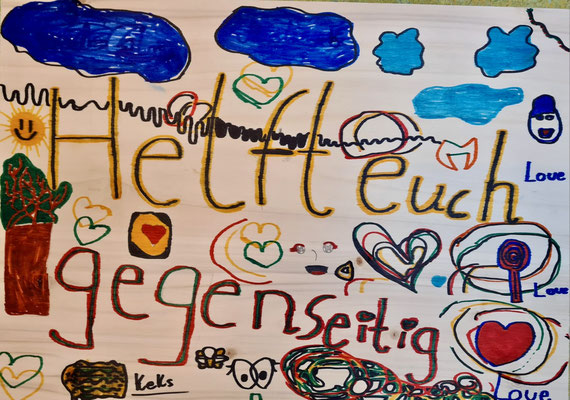 Helft euch
Love
gegenseitig
Love
Keks
Love